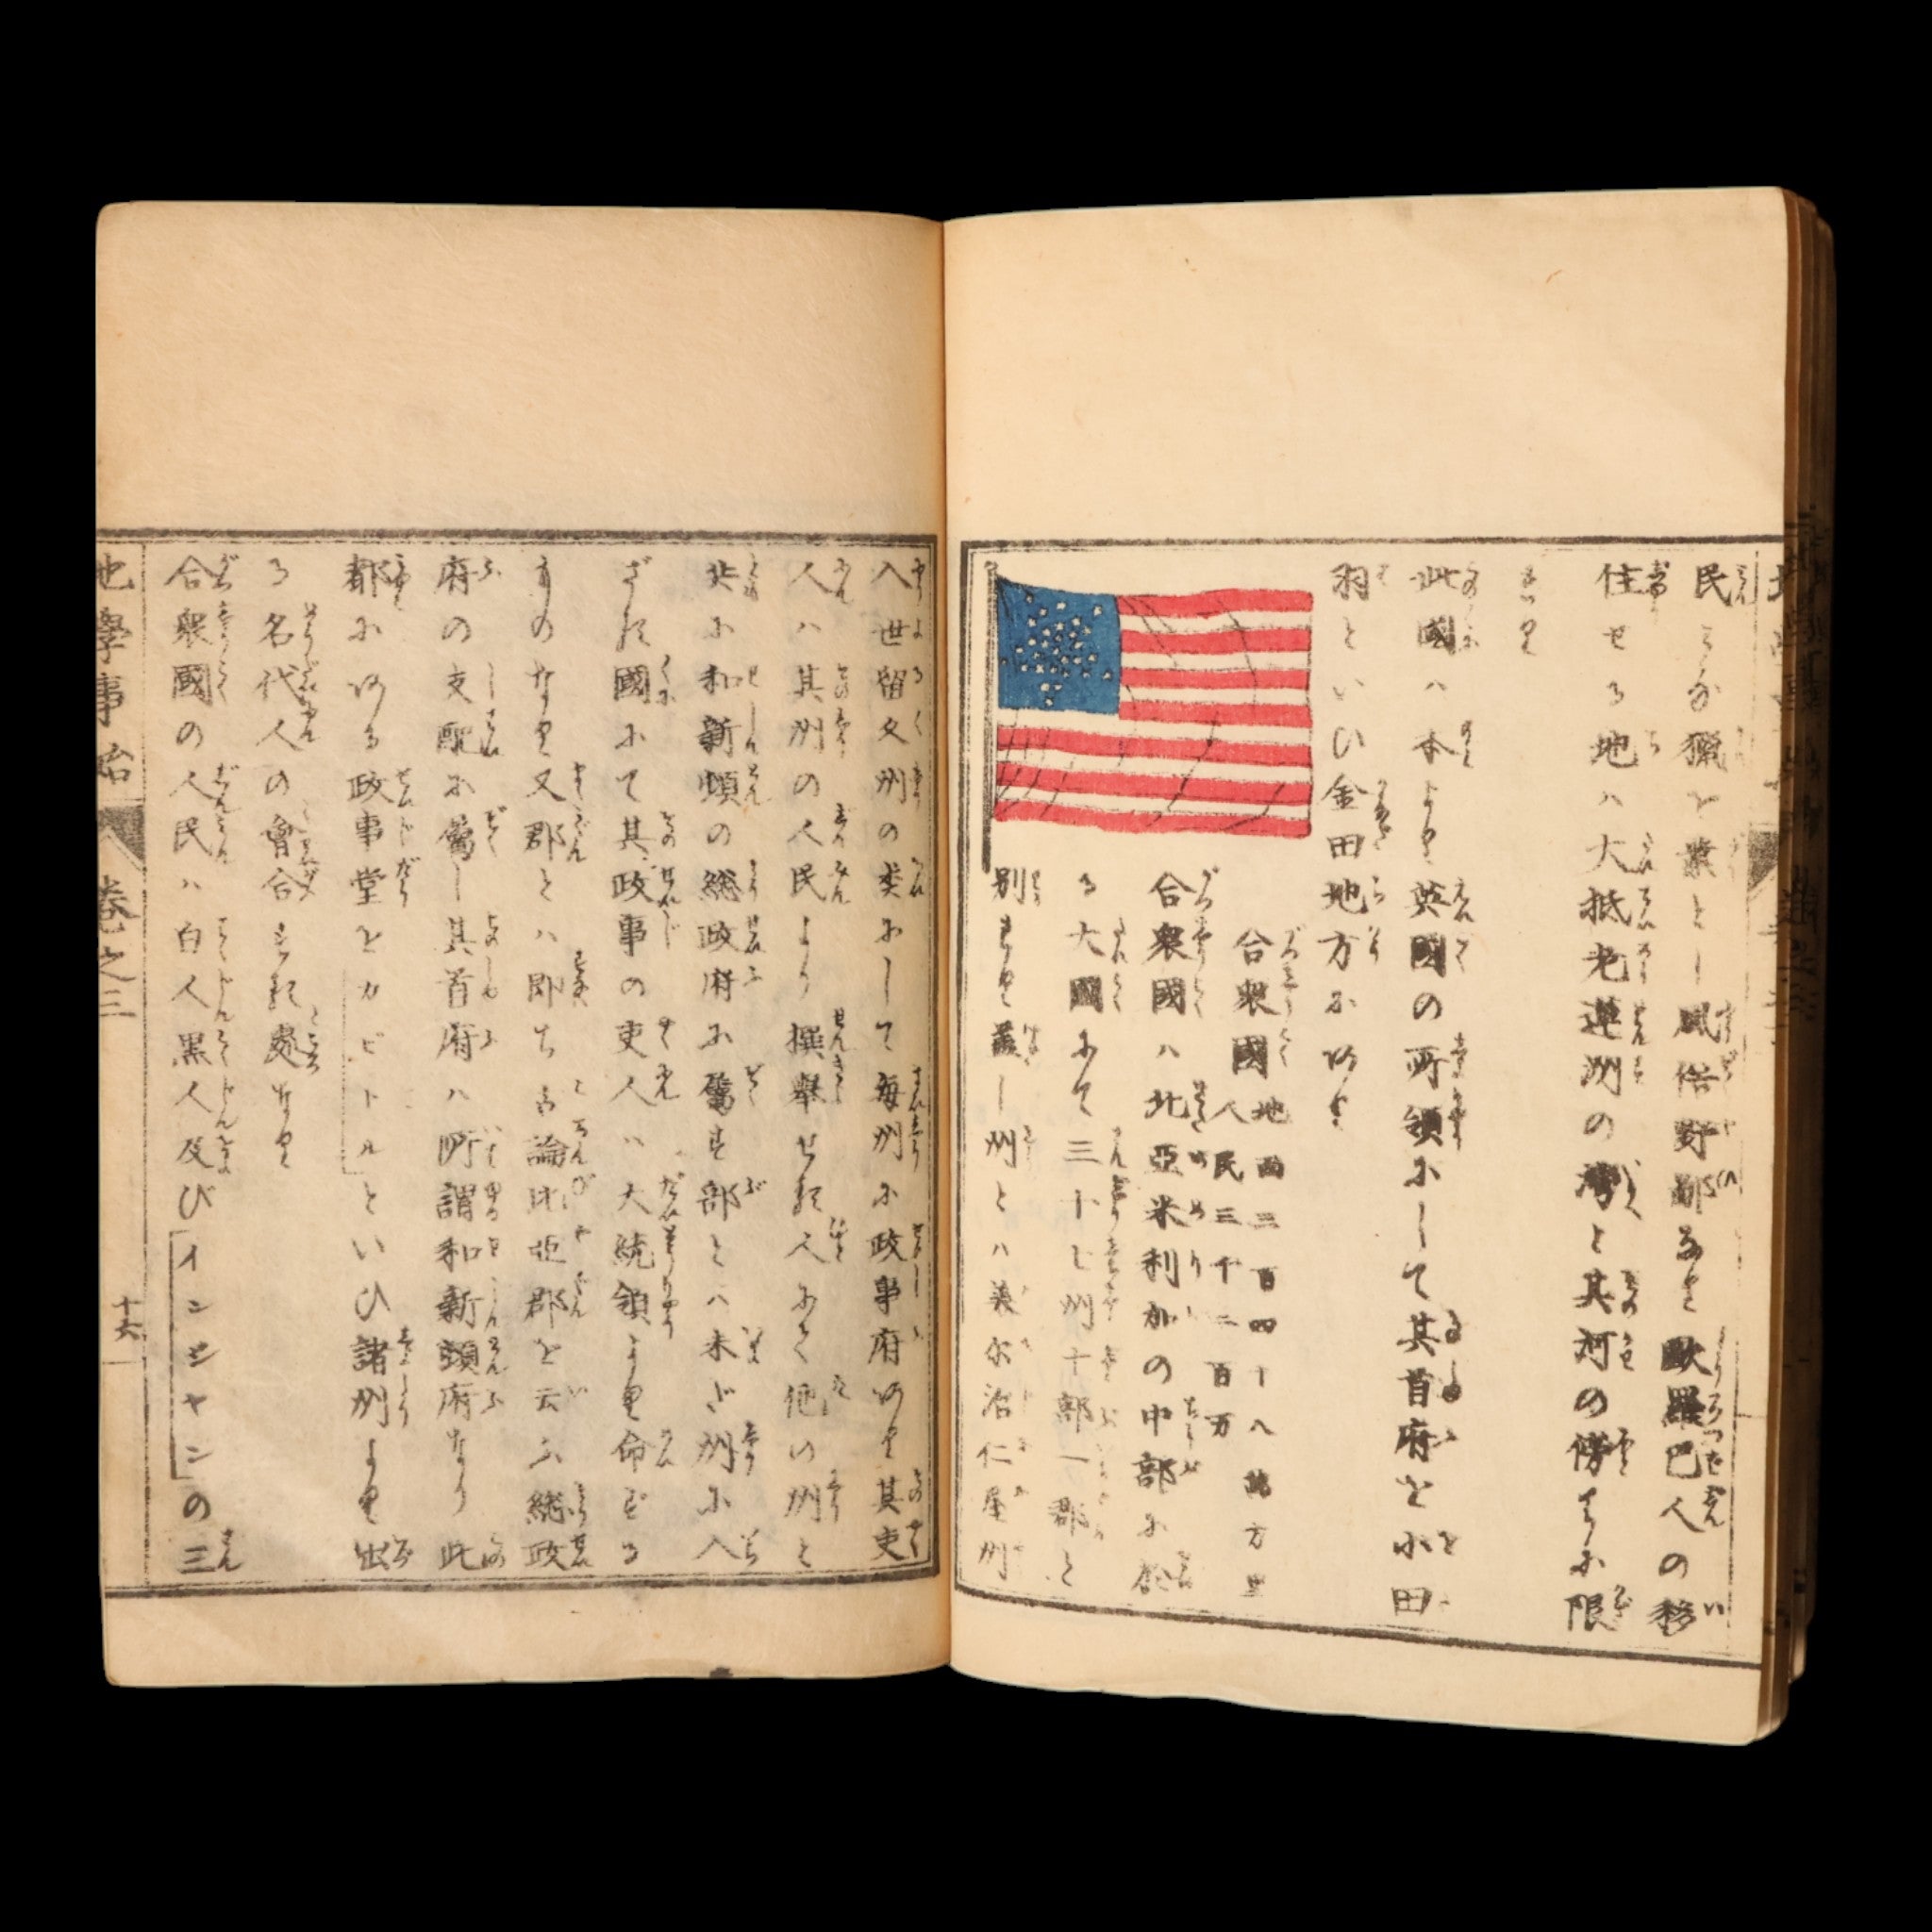 民ミな獵を業とし風俗野鄙なり歐羅巴人の移
住せる地ハ大抵老蓮洲の灣と其河の傍ら小限
れり
此國ハ本より英國の所領小して其首府を小田
羽といひ金田地方小あり
合衆國
地面三百四十八萬方里
人民三千二百万
合衆國ハ北亞米利加の中部小在
る大國にて三十七州十部一郡と
別り并し州とハ義尓治仁屋州
入世留文州の类小して毎州小政事府あり其吏
人ハ其州の人民より撰舉せる人にて他の州と
共小和新頓の総政府小属す部とハ未だ州小入
ざる國小て其政事の吏人ハ大統領より命ずる
ものなり又郡とハ即ち古論比亞郡を云ふ総政
府の支配小属し其首府ハ所謂和新頭府なり此
都小ある政事堂をカピトルといひ諸州より出
る名代人の會合する處なり
合衆國の人民ハ白人黒人及びインジヤンの三
地學事始
卷之三
十六